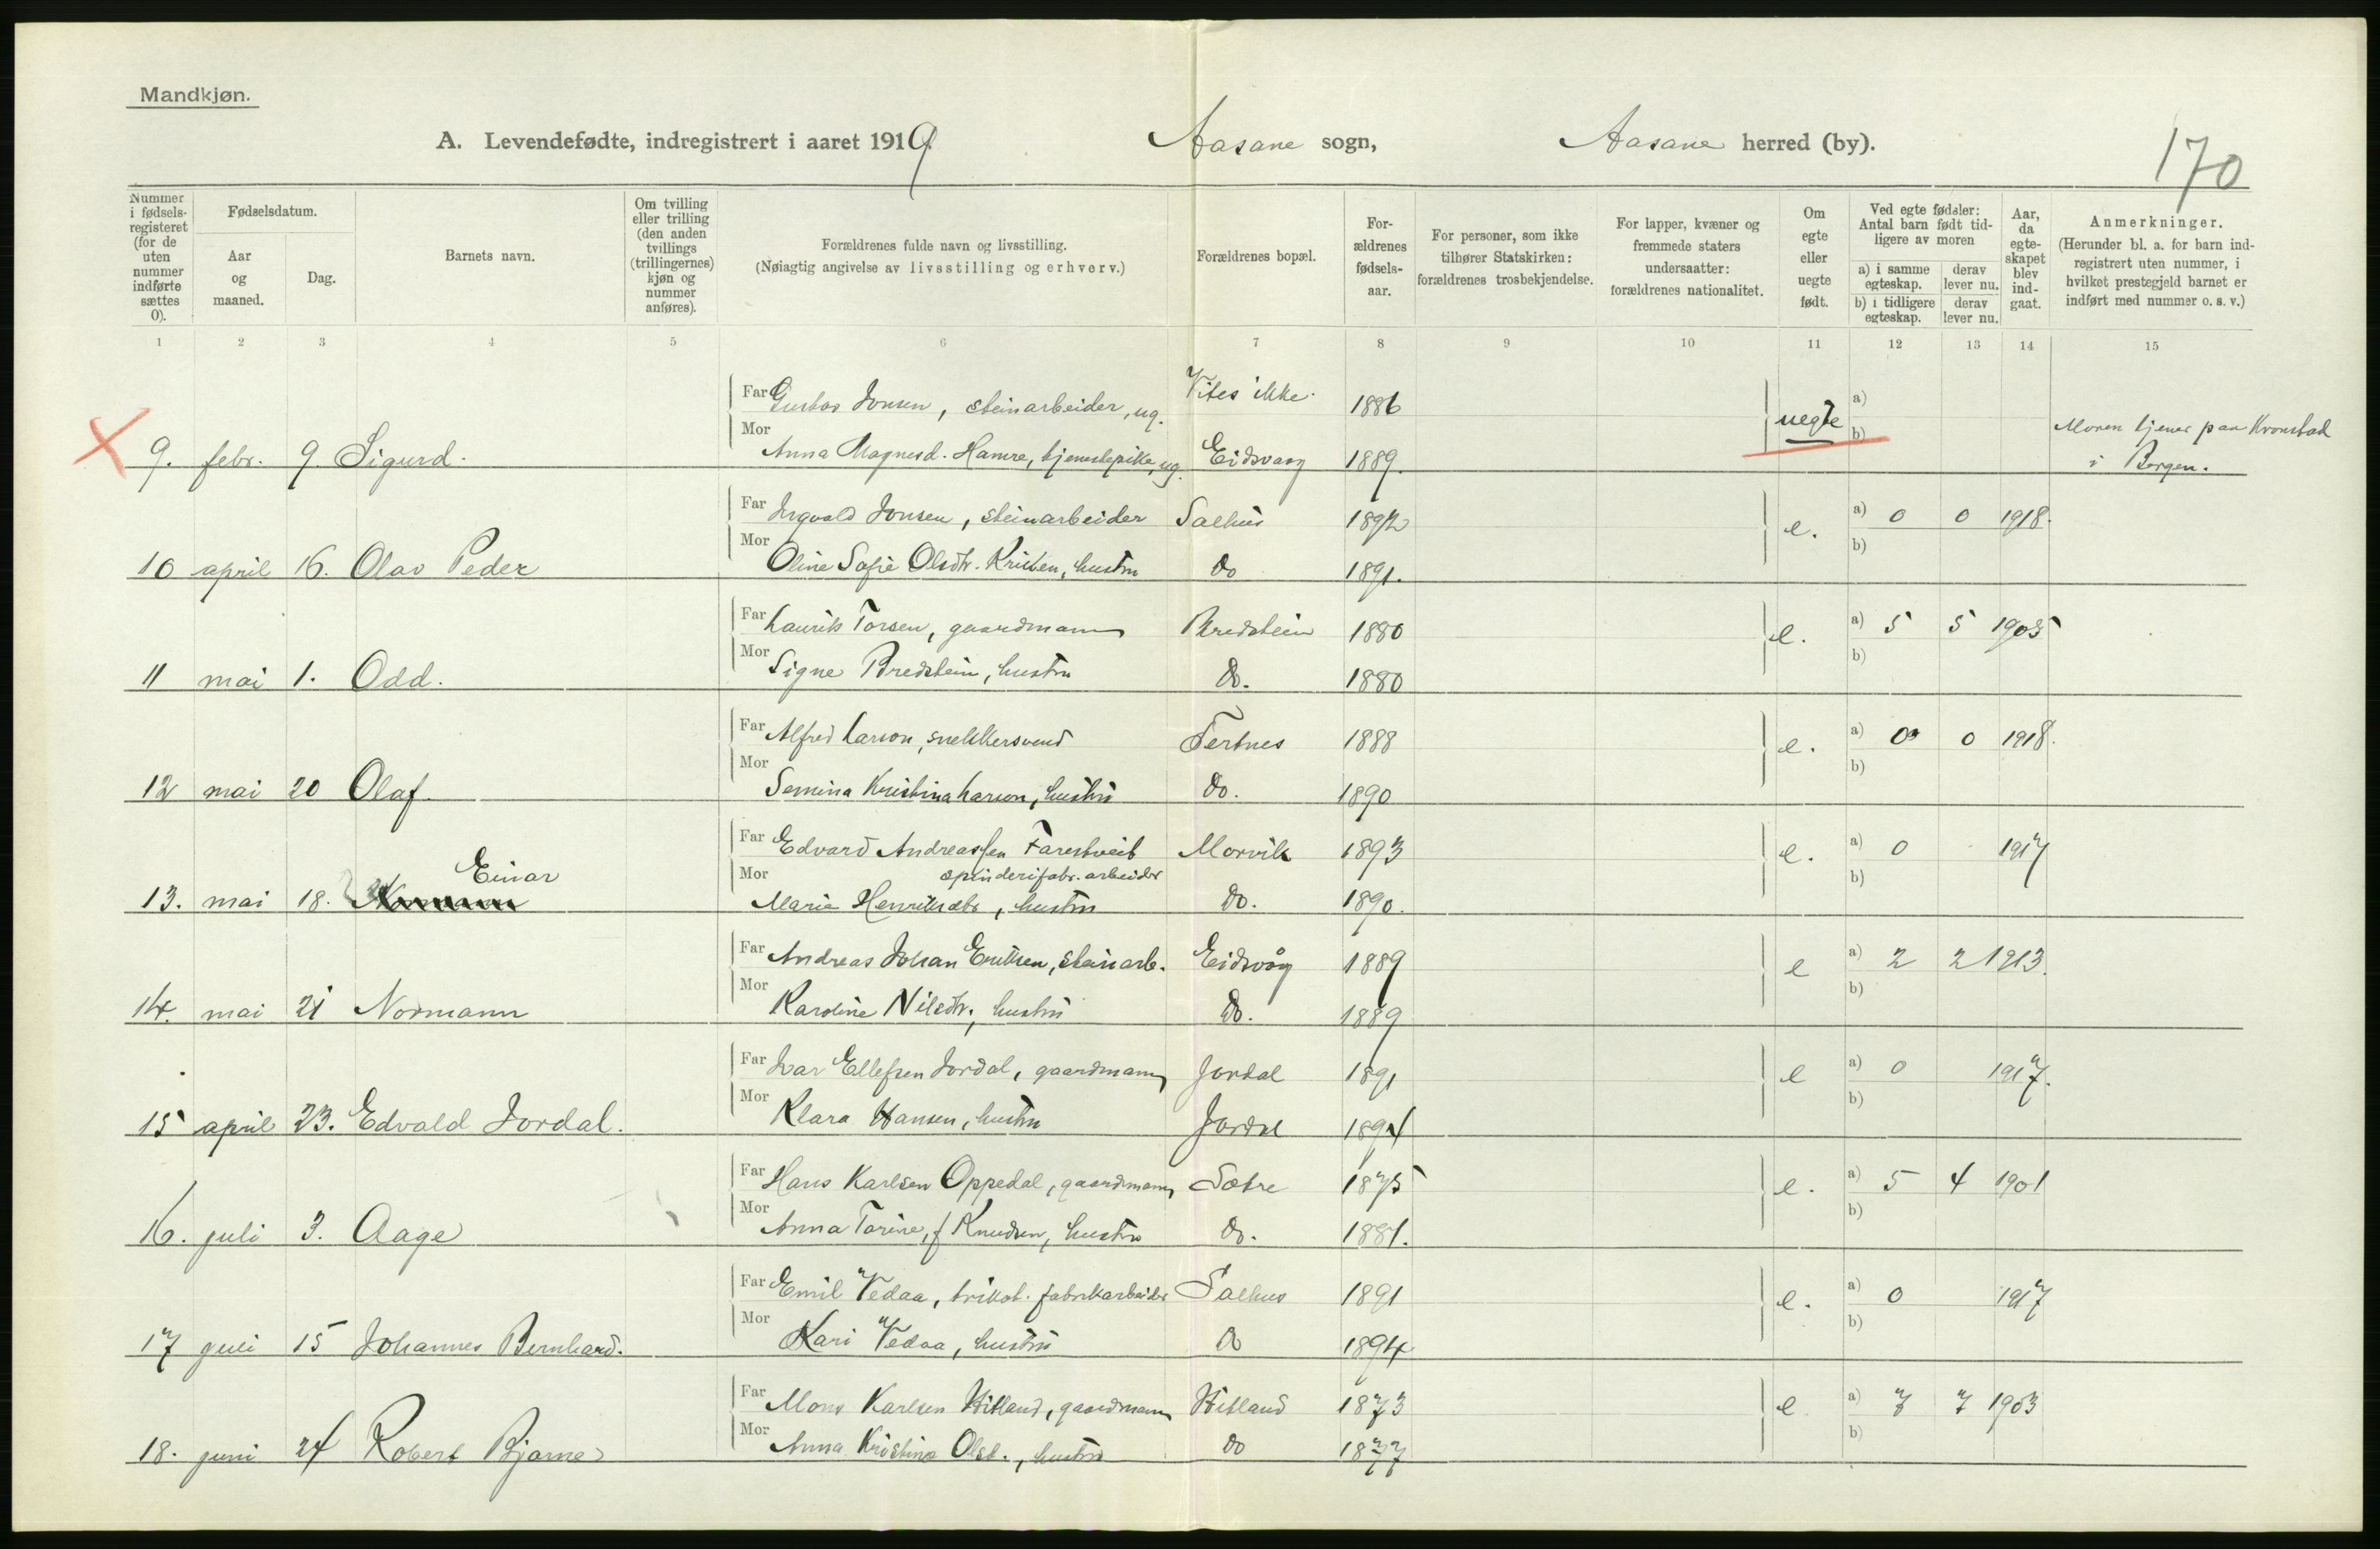 Mandkjøn.
A. Levendefødte, indregistrert i aaret 1919. Aasane sogn, Aasane herred (by).
170
Nummer i fødsels-registeret (for de uten nummer indførte sættes 0).
Fødselsdatum.
Aar og maaned.
Dag.
Barnets navn.
Om tvilling eller trilling (den anden tvillings (trillingernes) kjøn og nummer anføres).
Forældrenes fulde navn og livsstilling.
(Nøiagtig angivelse av livsstilling og erhverv.)
Forældrenes bopæl.
For-ældrenes fødsels-aar.
For personer, som ikke tilhører Statskirken: forældrenes trosbekjendelse.
For lapper, kvæner og fremmede staters undersaatter: forældrenes nationalitet.
Om egte eller uegte født.
Ved egte fødsler: Antal barn født tid-ligere av moren
a) i samme egteskap.
derav lever nu.
b) i tidligere egteskap.
derav lever nu.
Aar, da egte-skapet blev ind-gaat.
Anmerkninger.
(Herunder bl. a. for barn ind-registrert uten nummer, i hvilket prestegjeld barnet er indført med nummer o. s. v.)
1 2 3 4 5 6 7 8 9 10 11 12 13 14 15
Far Gustav Jonsen, steinarbeider, ug. Vites ikke. 1886 uegte a) b)
9. febr. 9. Sigurd. Mor Anna Magnesd. Hamre, tjenestepike, ug. Eidsvaag 1889.
Moren tjener paa Kronstad
i Bergen.
Far Ingvald Jonsen, steinarbeider Salhus 1892 e. a) 0 0 1918.
10 april 16. Olav Peder Mor Oline Sofie Olsdtr. hustru do 1891. b)
Far Laurits Torsen, gaardmann Bredstein 1880 e. a) 5 5 1905
11 mai 1. Odd. Mor Signe Bredstein, hustru do. 1880 b)
Far Alfred Larson, snekkersvend Tertnes 1888 e. a) 0 0 1918.
12 mai 20 Olaf. Mor Semina Kristina Larson, hustru do. 1890 b)
Far Edvard Andreassen Farestveit Morvik 1893 e. a) 0 1917
spinderifabr. arbeider
Einar
13. mai 18. Mor Marie Henriksdtr, hustru do. 1890. b)
Far Andreas Johan Eriksen, steinarb. Eidsvåg 1889 e a) 2 2 1913.
14. mai 21 Normann Mor Karoline Nilsdtr., hustru do. 1889 b)
Far Ivar Ellefsen Jordal, gaardmann Jordal 1891 e a) 0 1917.
15 april 23. Edvald Jordal. Mor Klara Hansen, hustru Jordal 1894 b)
Far Hans Karlsen Oppedal, gaardmann Sætre 1875 e. a) 5 4 1901
16. juli 3. Aage Mor Anna Torine, f Knudsen, hustru do. 1881. b)
Far Emil Vedaa, trikot. fabrikarbeider Salhus 1891 e. a) 0 1917
17 juli 15 Johannes Bernhard. Mor Kari Vedaa, hustru do 1894 b)
Far Mons Karlsen Hitland, gaardmann Hitland 1873 e a) 7 7 1903
18. juni 24 Robert Bjarne Mor Anna Kristina Olsd., hustru do 1877 b)